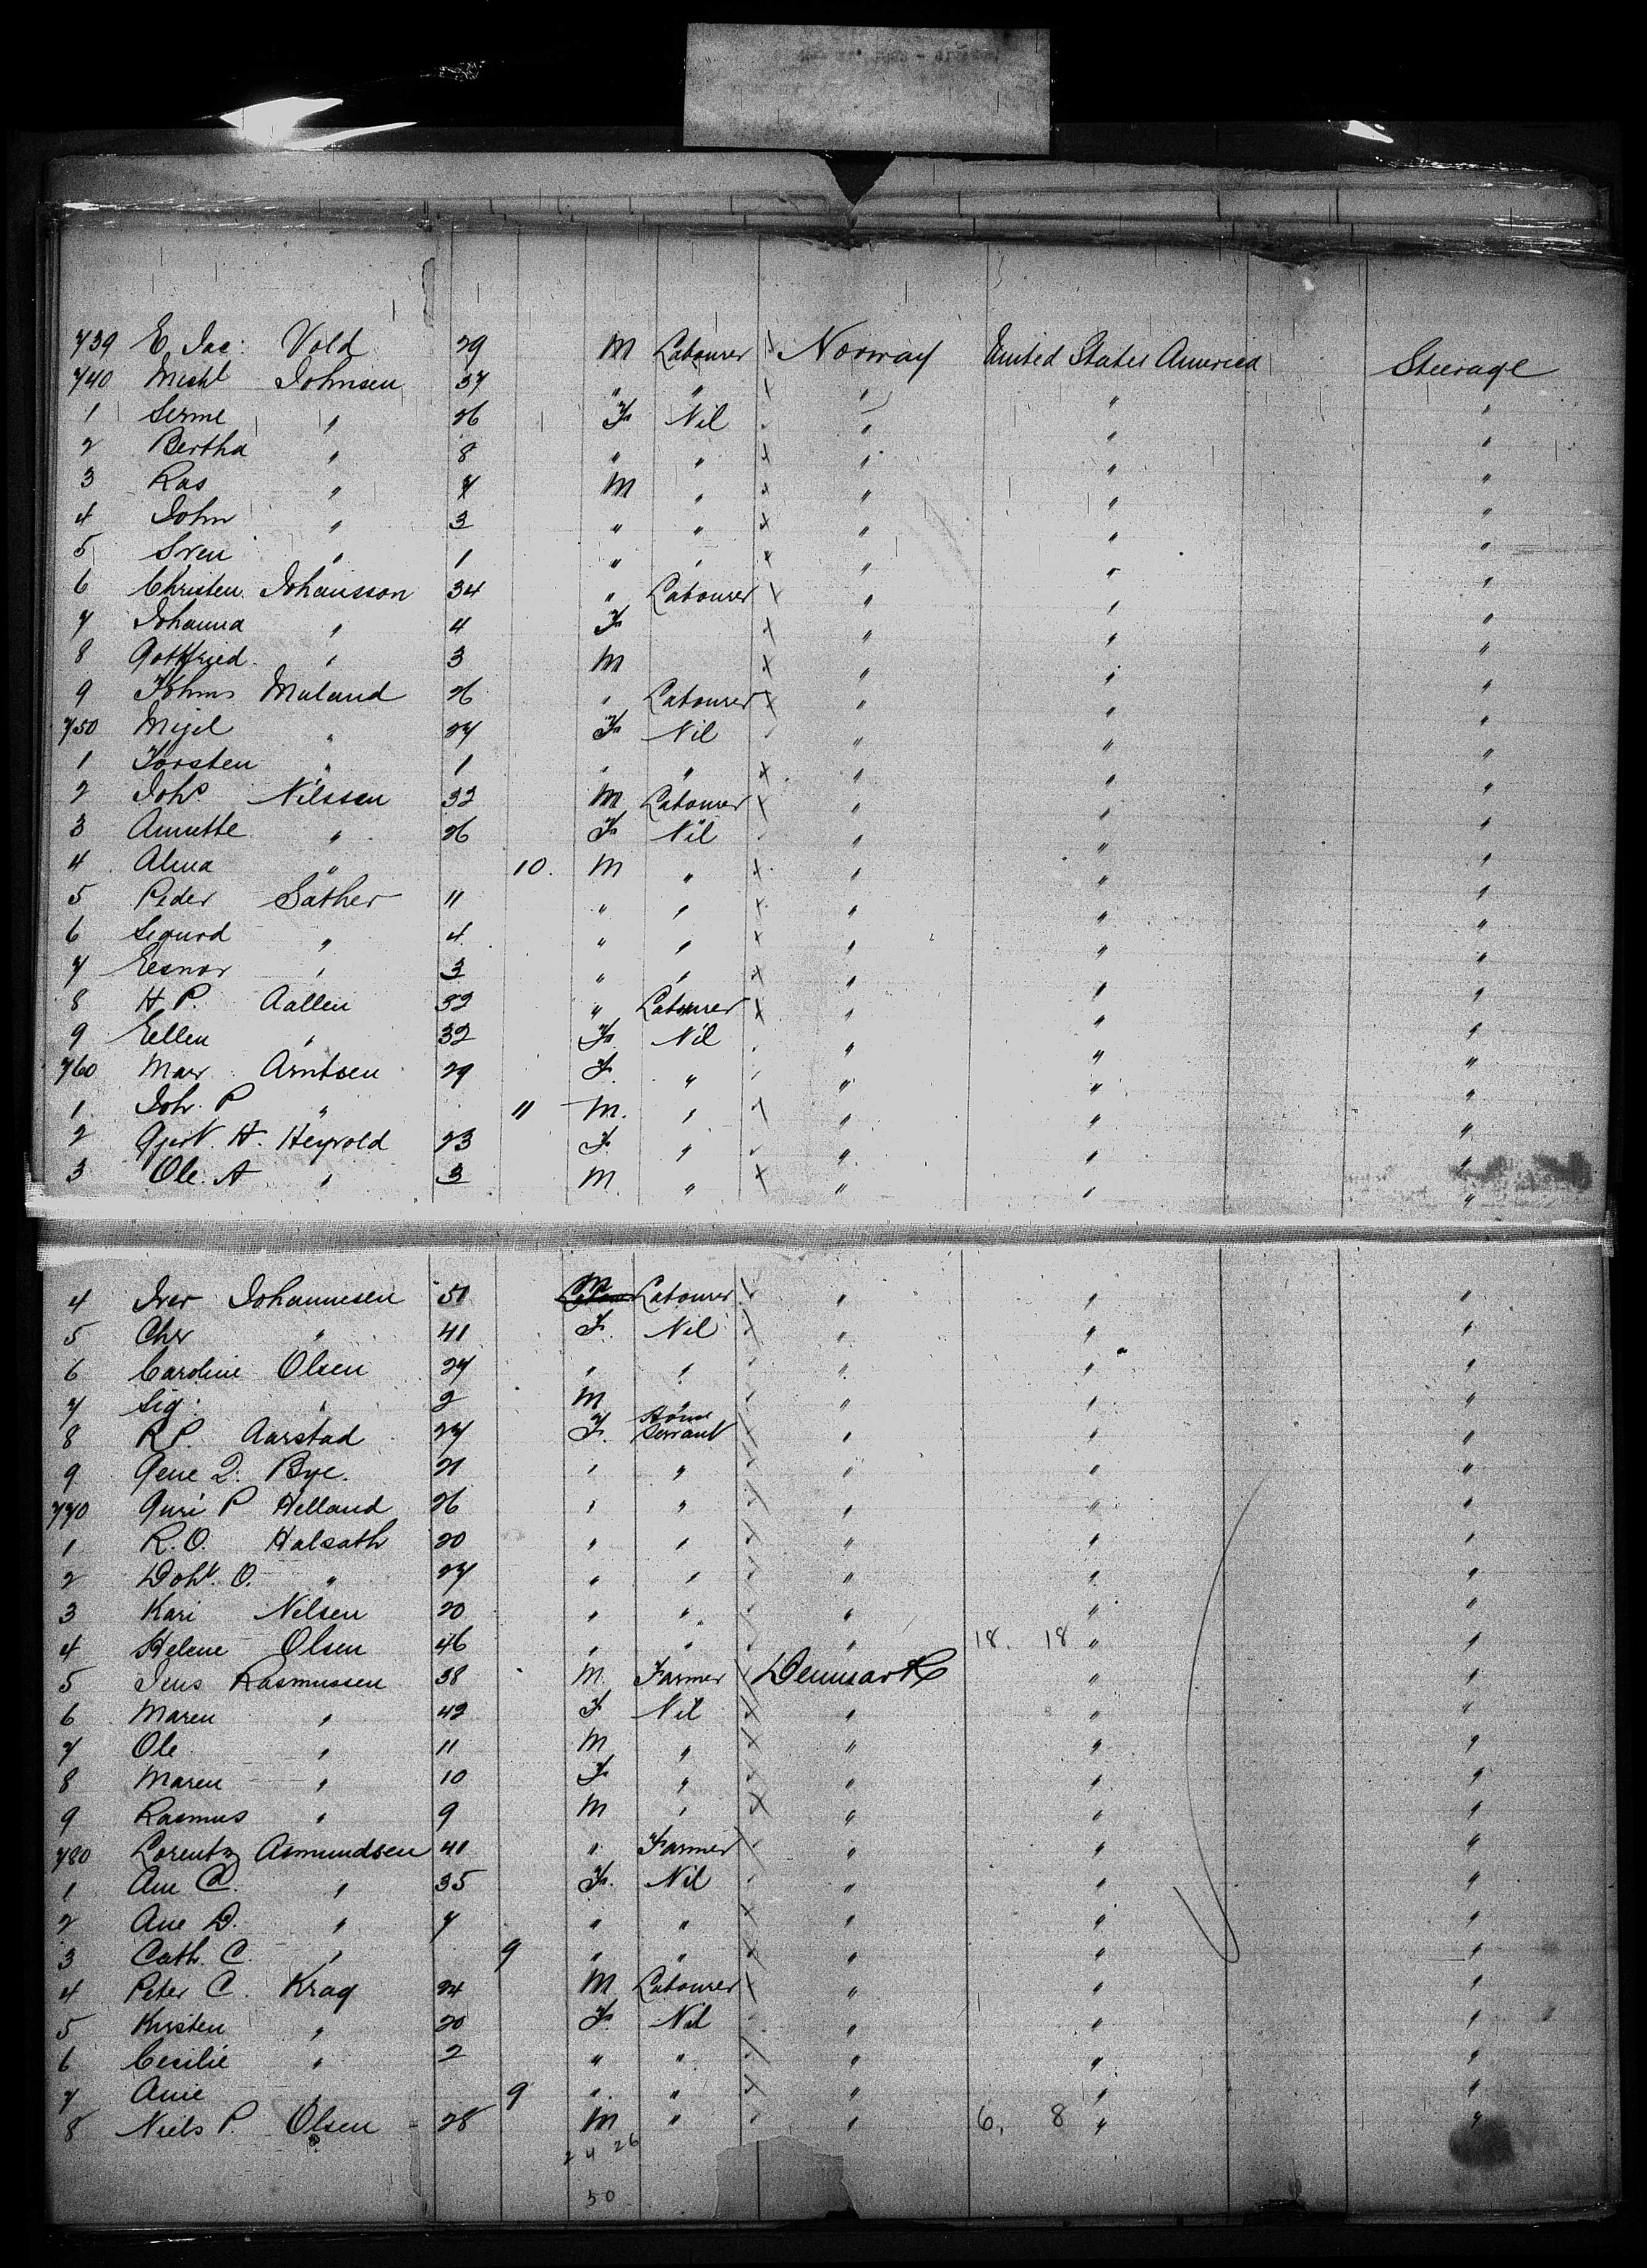 739 E. Jac: Vold 29 M Labourer Norway United States America Steerage
740 Michl Johnsen 37 " " " " "
1 Serine " 26 F Nil " " "
2 Bertha " 8 " " " " "
3 Ras " 7 M " " " "
4 John " 3 " " " " "
5 Sven " 1 " " " " "
6 Christen Johansson 34 " Labourer " " "
7 Johanna " 4 F " " "
8 Gottfried " 3 M " " "
9 Muland 26 " Labourer " " "
750 " 27 F Nil " " "
1 Torsten " 1 " " " " "
2 Johs Nilssen 32 M Labourer " " "
3 Annette " 26 F Nil " " "
4 Alma " 10. M " " " "
5 Peder Sather 11 " " " " "
6 Sigurd " 4 " " " " "
7 " 3 " " " " "
8 H. P. Aallen 32 " Labourer " " "
9 Eellen " 32 F Nil " " "
760 Mary Arntsen 29 F. " " " "
1 Joh. P " 11 M. " " " "
2 H. Heyvold 23 F. " " " "
3 Ole. A " 3 M. " " " "
4 Iver Johannesen 51 M Labourer " " "
5 Chr " 41 F. Nil " " "
6 Caroline Olsen 27 " " " " "
7 Sig: " 2 M " " " "
8 R P. Aarstad 27 F. House Servant " " "
9 Bye. 21 " " " " "
770 Guri P Helland 26 " " " " "
1 R. O. Halsath 20 " " " " "
2 O. " 27 " " " " "
3 Kari Nelsen 20 " " " " "
4 Helene Olsen 46 " " " 18. 18 " "
5 Jens Rasmussen 38 M. Farmer Denmark " "
6 Maren " 42 F Nil " " "
7 Ole " 11 M " " " "
8 Maren " 10 F " " " "
9 Rasmus " 9 M " " " "
780 Lorentz Asmundsen 41 " Farmer " " "
1 Ane C. " 35 F. Nil " " "
2 Ane D. " 7 " " " " "
3 Cath. C. " 9 " " " " "
4 Peter C. Krag 24 M Labourer " " "
5 Kirsten " 20 F. Nil " " "
6 Cecilie " 2 " " " " "
7 Anie " 9 " " " " "
8 Niels P. Olsen 28 M " " 6, 8 " "
24 26
50